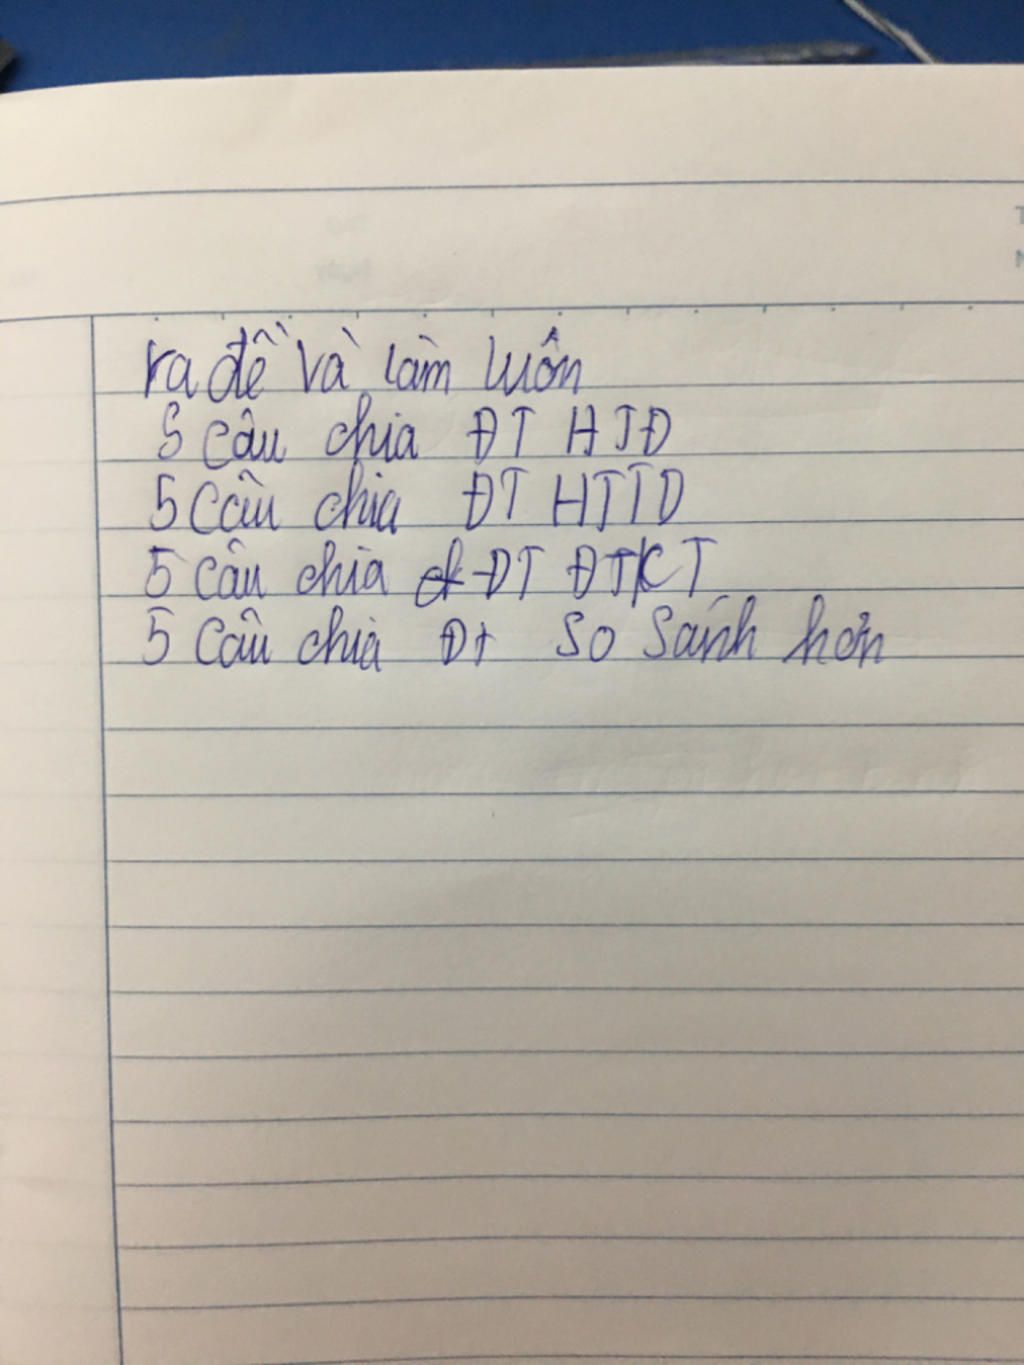 ra đề và làm luôn
5 câu chia ĐT HTĐ
5 câu chia ĐT HTTD
5 câu chia ĐT ĐTKT
5 câu chia Đt so sánh hơn